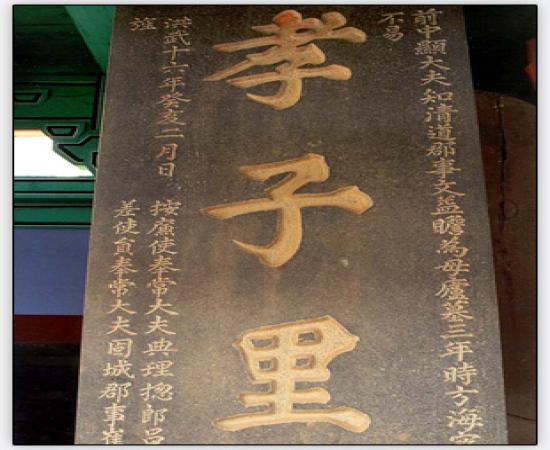 前中顯大夫知清道郡事文益瞻為母廬墓三年時方海寇
不易
孝子里
洪武十六年癸亥二月日
旌
按廉使奉常大夫典理捴郎呂
差使員奉常大夫固城郡事崔